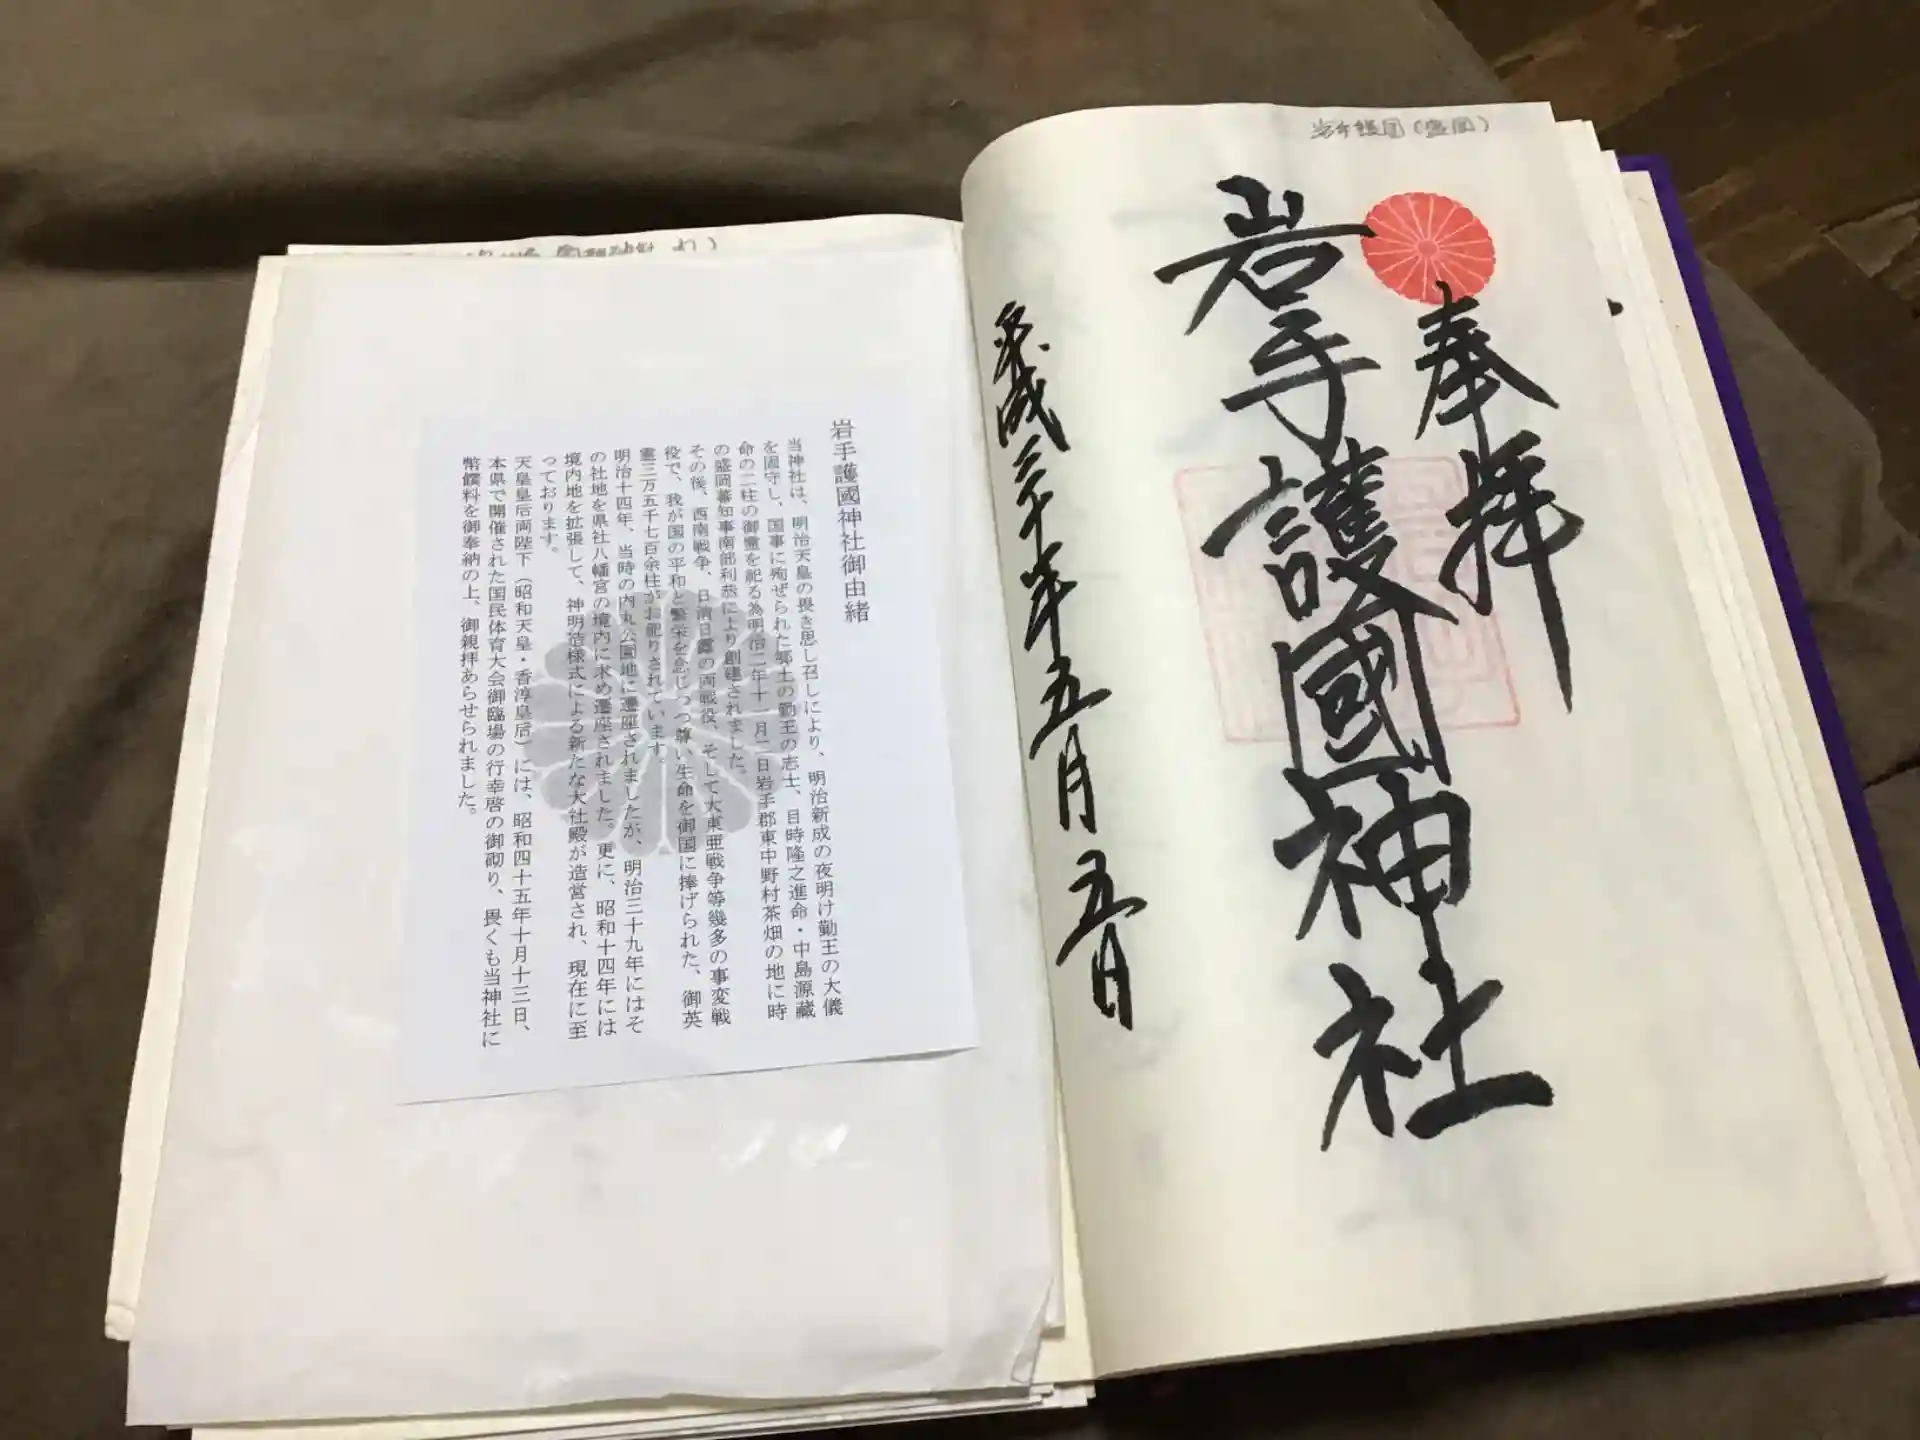 岩手護国(盛岡)
奉拝
岩手護國神社
平成三十年五月五日
岩手護國神社御由緒
当神社は、明治天皇の畏き思し召しにより、明治新成の夜明け勤王の大儀
を固守し、国事に殉ぜられた郷土の勤王の志士、目時隆之進命・中島源藏
命の二柱の御霊を祀る為明治二年十一月二日岩手郡東中野村茶畑の地に時
の盛岡蕃知事南部利恭により創建されました。
その後、西南戦争、日清日露の両戦役、そして大東亜戦争等幾多の事変戦
役で、我が国の平和と繁栄を念じつつ尊い生命を御国に捧げられた、御英
霊三万五千七百余柱がお祀りされています。
明治十四年、当時の内丸公園地に遷座されましたが、明治三十九年にはそ
の社地を県社八幡宮の境内に求め遷座されました。更に、昭和十四年には
境内地を拡張して、神明造様式による新たな大社殿が造営され、現在に至
っております。
天皇皇后両陛下(昭和天皇・香淳皇后)には、昭和四十五年十月十三日、
本県で開催された国民体育大会御臨場の行幸啓の御砌り、畏くも当神社に
幣饌料を御奉納の上、御親拝あらせられました。